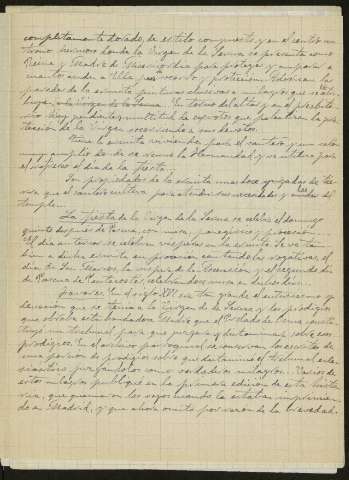 completamente dorado, de estilo compuesto, y en el centro un
trono hermoso donde la Virgen de la Sierra se presenta como
Reina y Madre de Misericordia para proteger y amparar a
cuantos acuden a Ella, por socorro y protección. Adornan las
paredes de la ermita pinturas alusivas a milagros que se atri-
buyen a la Virgen de la Sierra. En torno del altar y en el presbite-
rio hay pendientes multitud de exvotos que patentizan la pro-
tección de la Virgen socorriendo a sus devotos.
Tiene la ermita vivienda para el santero y un salón
muy amplio donde se reune la Hermandad, y se utiliza para
el refresco el día de la fiesta.
Son propiedad de la ermita unas doce yugadas de tie-
rra que el santero cultiva para atender sus necesidades y las del
templo.
La fiesta de la Virgen de la Sierra se celebra el domingo
quinto después de Pascua, con misa, panegírico y procesión.
El día anterior se celebran vísperas en la ermita. Se va tam-
bién a dicha ermita en procesión cantando las rogativas, el
día de San Marcos, la víspera de la Ascensión y el segundo día
de Pascua de Pentecostés, celebrándose misa en dichos días.
Favores. En el siglo XVI era tan grande el entusiasmo y
devoción que se tenía a la Virgen de la Sierra y los prodigios
que obraba esta bondadosa Madre que el Prelado de consti-
tuyó un tribunal para que juzgara y dictaminara sobre sus
prodigios. En el archivo parroquial se conservan los escritos de
una porción de prodigios sobre que dictaminó el tribunal ecle-
siástico juzgándolos como verdaderos milagros. Varios de
estos milagros publiqué en la primera edición de esta histo-
ria, que quemaron los rojos cuando la estaban imprimien-
do en Madrid, y que ahora omito por razón de la brevedad.